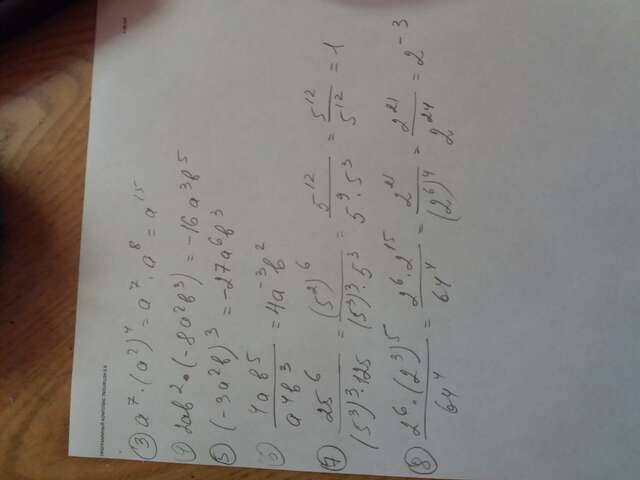 ③ a⁷·(a²)⁴ = a⁷·a⁸ = a¹⁵
④ 2ab²·(-8a²b³) = -16a³b⁵
⑤ (-3a²b)³ = -27a⁶b³
⑥ 4ab⁵/a⁴b³ = 4a⁻³b²
⑦ 25⁶/(5³)³·125 = (5²)⁶/(5³)³·5³ = 5¹²/5⁹·5³ = 5¹²/5¹² = 1
⑧ 2⁶·(2³)⁵/64⁴ = 2⁶·2¹⁵/64⁴ = 2²¹/(2⁶)⁴ = 2²¹/2²⁴ = 2⁻³